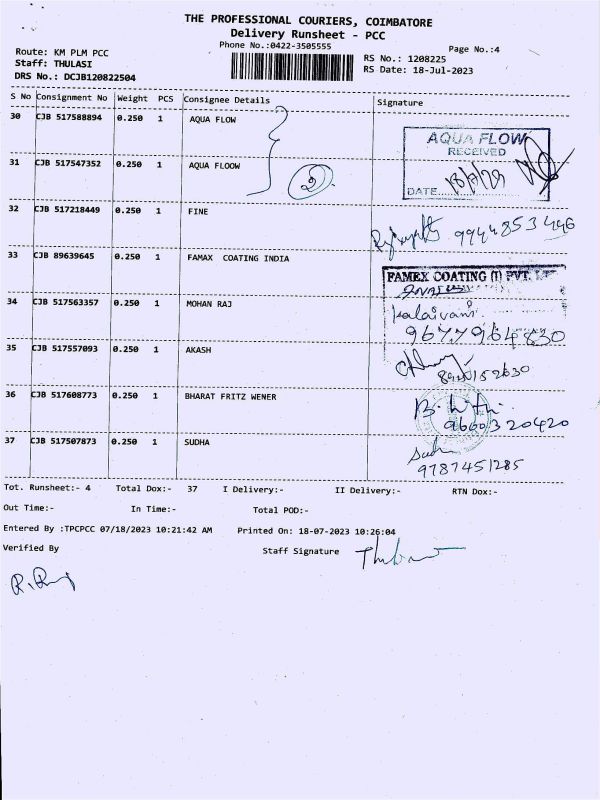 THE PROFESSIONAL COURIERS, COIMBATORE
Delivery Runsheet - PCC
Phone No.:0422-3505555
Page No.:4
Route: KM PLM PCC
Staff: THULASI
DRS No.: DCJB120822504
RS No.: 1208225
RS Date: 18-Jul-2023
S No Consignment No Weight PCS Consignee Details Signature
30 CJB 517588894 0.250 1 AQUA FLOW
AQUA FLOW
RECEIVED
31 CJB 517547352 0.250 1 AQUA FLOOW
2
DATE
32 CJB 517218449 0.250 1 FINE
9944853446
33 CJB 89639645 0.250 1 FAMAX COATING INDIA
FAMEX COATING (I) PVT.
34 CJB 517563357 0.250 1 MOHAN RAJ
Kalaivani
9677964830
35 CJB 517557093 0.250 1 AKASH
36 CJB 517608773 0.250 1 BHARAT FRITZ WENER
9600320420
37 CJB 517507873 0.250 1 SUDHA
9787451285
Tot. Runsheet:- 4 Total Dox:- 37 I Delivery:- II Delivery:- RTN Dox:-
Out Time:- In Time:- Total POD:-
Entered By :TPCPCC 07/18/2023 10:21:42 AM Printed On: 18-07-2023 10:26:04
Verified By Staff Signature